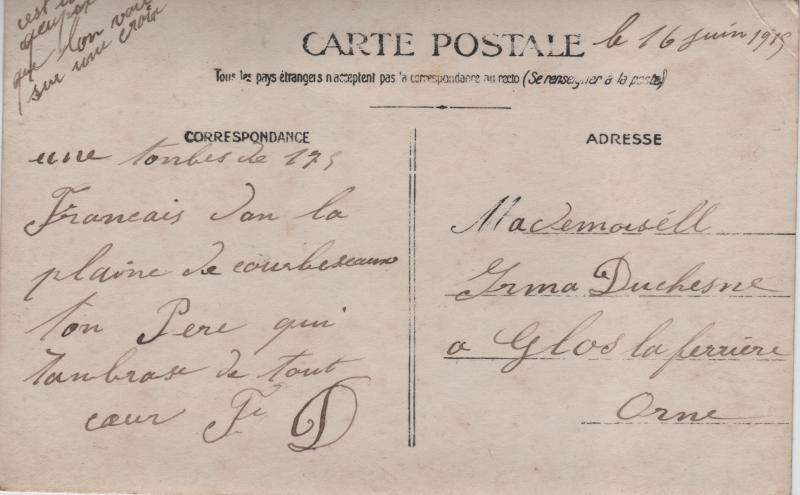 que lon voit
sur une croix
CARTE POSTALE
le 16 juin 1915
Tous les pays étrangers n'acceptent pas la correspondance au recto (Se renseigner à la poste)
CORRESPONDANCE
une tonbes de 175
Francais dan la
plaine de courbeseaux
ton Pere qui
tanbrase de tout
cœur Fr D
ADRESSE
Mademoiséll
Irma Duchesne
a Glos la ferriere
Orne